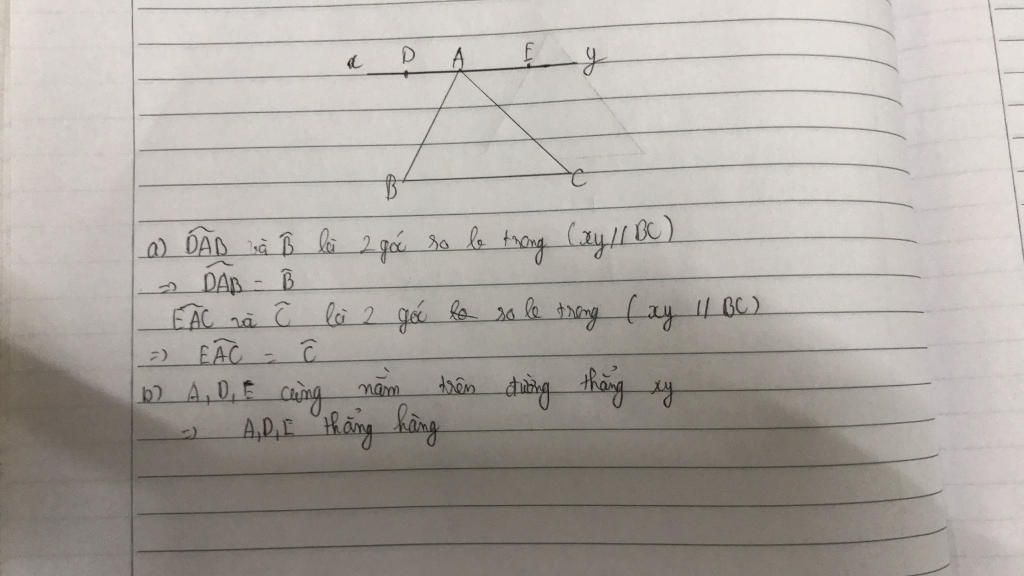 x D A E y
B C
a) D̂AB và B̂ là 2 góc so le trong (xy // BC)
=> D̂AB = B̂
ÊAC và Ĉ là 2 góc so le trong (xy // BC)
=> EÂC = Ĉ
b) A, D, E cùng nằm trên đường thẳng xy
=> A, D, E thẳng hàng